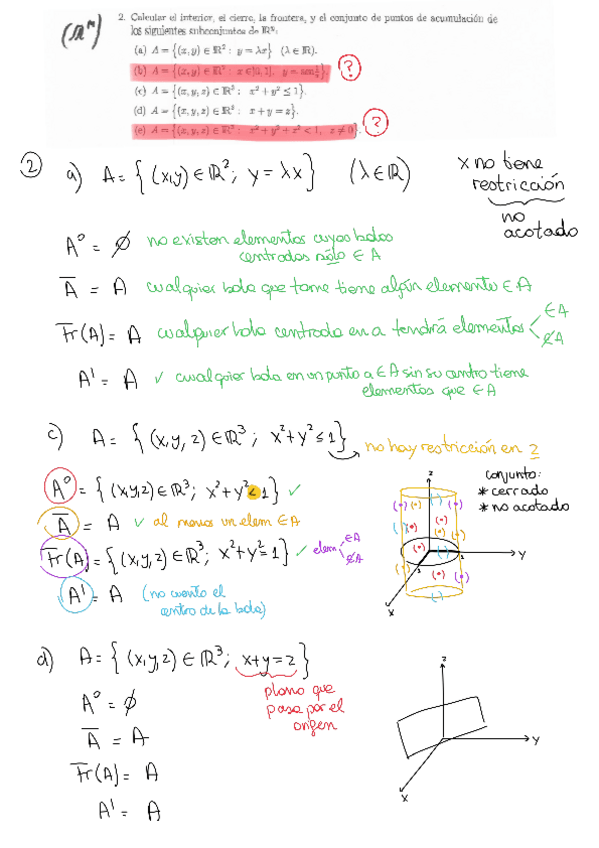 (ℝⁿ)
2. Calcular el interior, el cierre, la frontera, y el conjunto de puntos de acumulación de
los siguientes subconjuntos de ℝⁿ:
(a) A = {(x, y) ∈ ℝ² : y = λx} (λ ∈ ℝ).
(b) A = {(x, y) ∈ ℝ² : x ∈]0, 1], y = sen 1/x}. ?
(c) A = {(x, y, z) ∈ ℝ³ ; x² + y² ≤ 1}.
(d) A = {(x, y, z) ∈ ℝ³ ; x + y = z}.
(e) A = {(x, y, z) ∈ ℝ³ : x² + y² + z² < 1, z ≠ 0}. ?
2 a) A = { (x,y) ∈ ℝ²; y = λx } (λ ∈ ℝ)
x no tiene
restricción
no
acotado
A° = ∅ no existen elementos cuyas bolas
centradas sólo ∈ A
A̅ = A cualquier bola que tome tiene algún elemento ∈ A
Fr(A) = A cualquier bola centrada en a tendrá elementos < ∈A
∉A
A' = A ✓ cualquier bola en un punto a ∈ A sin su centro tiene
elementos que ∈ A
c) A = { (x,y,z) ∈ ℝ³ ; x²+y² ≤ 1 } → no hay restricción en z
A° = { (x,y,z) ∈ ℝ³; x²+y² < 1 } ✓
A̅ = A ✓ al menos un elem ∈ A
Fr(A) = { (x,y,z) ∈ ℝ³; x²+y² = 1 } ✓ elem < ∈A
∉A
A' = A (no cuento el
centro de la bola)
conjunto:
* cerrado
* no acotado
z
y
x
d) A = { (x,y,z) ∈ ℝ³; x+y=z }
plano que
pasa por el
origen
A° = ∅
A̅ = A
Fr(A) = A
A' = A
z
y
x